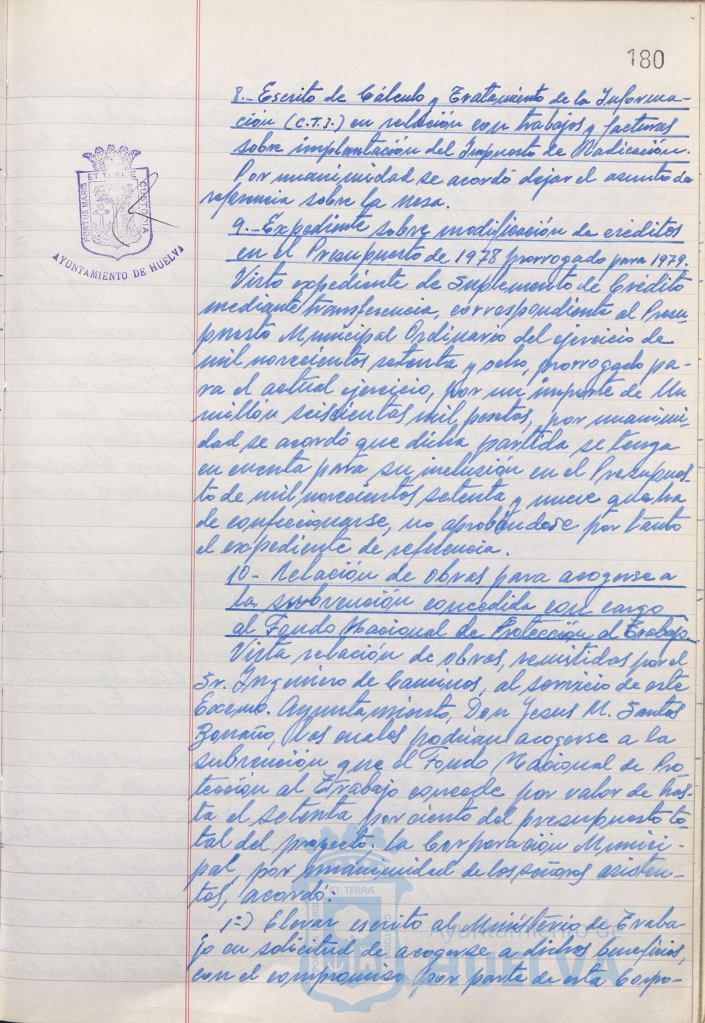 180
8.- Escrito de Cálculo y Tratamiento de la Informa-
ción (C.T.I.) en relación con trabajos y facturas
sobre implantación del Impuesto de Radicación.
Por unanimidad se acordó dejar el asunto de
referencia sobre la mesa.
9.- Expediente sobre modificación de créditos
en el Presupuesto de 1978 prorrogado para 1979.
Visto expediente de Suplemento de Crédito
mediante transferencia, correspondiente al Presu-
puesto Municipal Ordinario del ejercicio de
mil novecientos setenta y ocho, prorrogado pa-
ra el actual ejercicio, por un importe de Un
millón seiscientas mil pesetas, por unanimi-
dad se acordó que dicha partida se tenga
en cuenta para su inclusión en el Presupues-
to de mil novecientos setenta y nueve que ha
de confeccionarse, no aprobándose por tanto
el expediente de referencia.
10- Relación de obras para acogerse a
la subvención concedida con cargo
al Fondo Nacional de Protección al Trabajo
Vista relación de obras, remitidas por el
Sr. Ingeniero de Caminos, al servicio de este
Excmo. Ayuntamiento, Don Jesus M. Santos
las cuales podrían acogerse a la
subvención que el Fondo Nacional de Pro-
tección al Trabajo concede por valor de has-
ta el setenta por ciento del presupuesto to-
tal del proyecto. la Corporación Munici-
pal, por unanimidad de los señores asisten-
tes, acordó:
1º) Elevar escrito al Ministerio de Traba-
jo en solicitud de acogerse a dichos beneficios,
con el compromiso por parte de esta Corpo-
PORTUS MARIS ET TERRE CUSTODIA
AYUNTAMIENTO DE HUELVA
ET TERRÆ
Ayuntamiento de
HUELVA